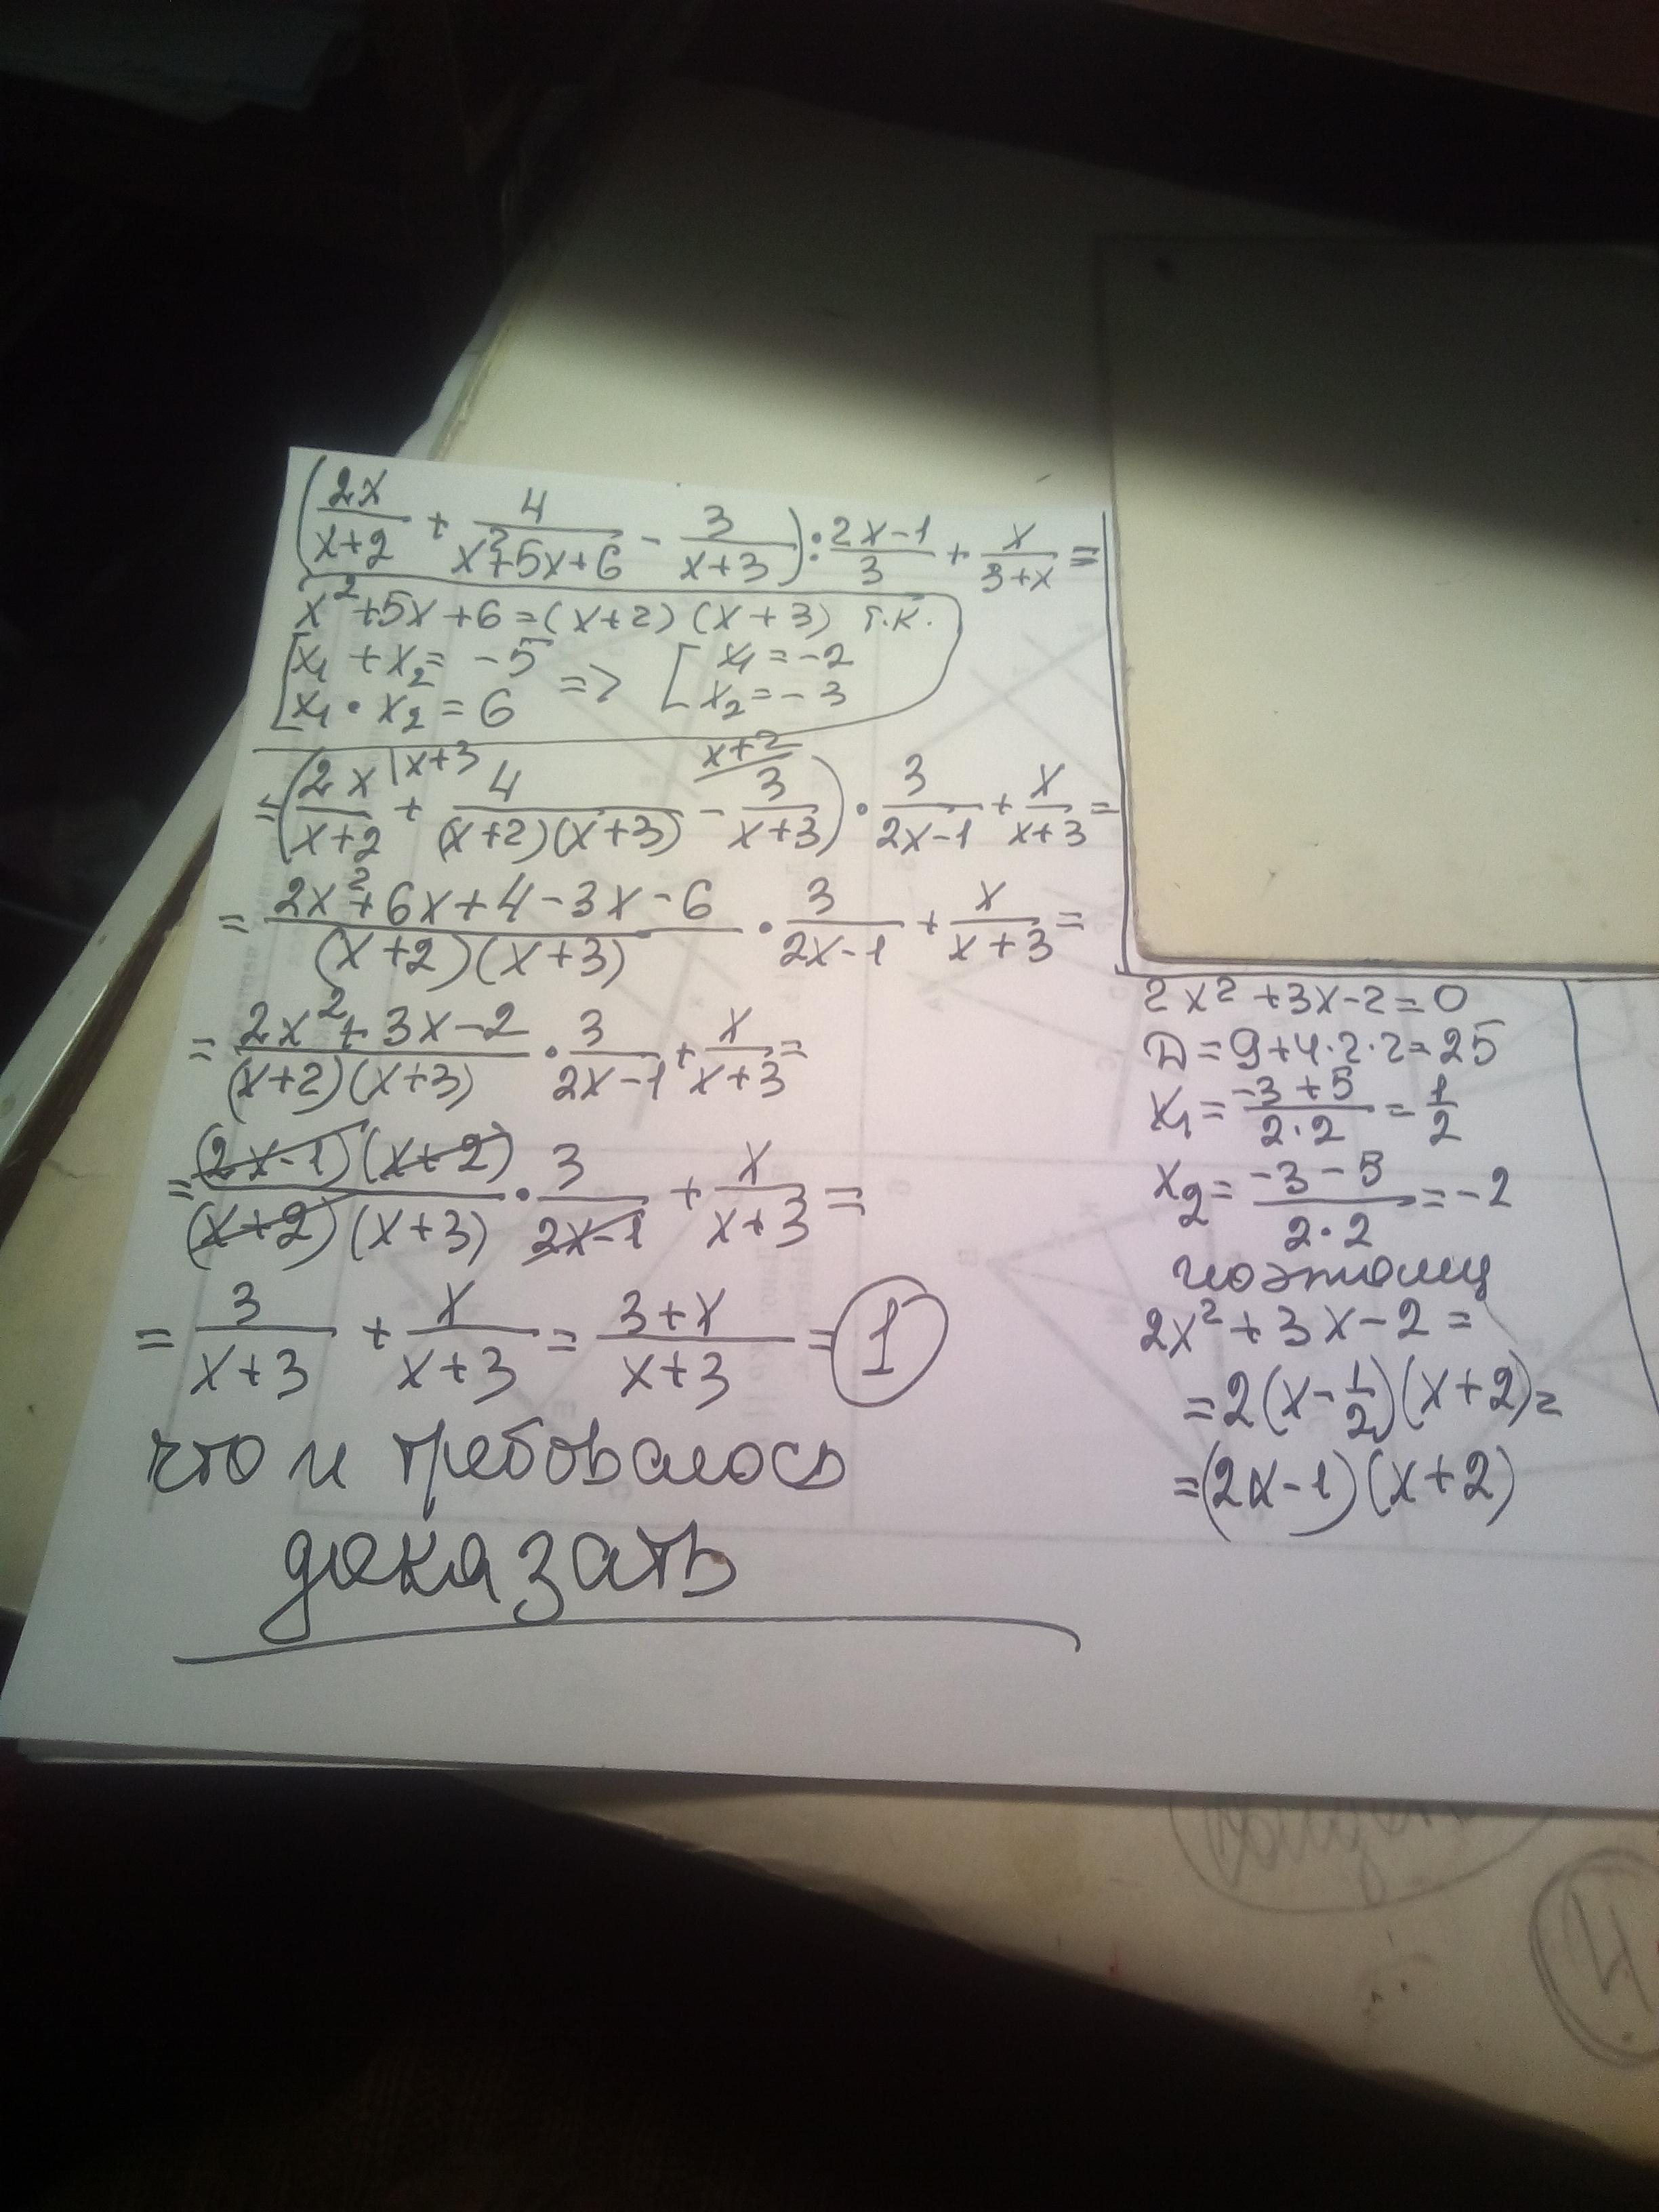 (2x/(x+2) + 4/(x²+5x+6) - 3/(x+3)) : (2x-1)/3 + x/(3+x) =
x²+5x+6=(x+2)(x+3) т.к.
[x₁ + x₂ = -5 => [x₁ = -2
[x₁ • x₂ = 6 [x₂ = -3
= (2x/(x+2) |x+3 + 4/((x+2)(x+3)) - 3/(x+3) x+2) • 3/(2x-1) + x/(x+3) =
= (2x²+6x+4-3x-6)/((x+2)(x+3)) • 3/(2x-1) + x/(x+3) =
= (2x²+3x-2)/((x+2)(x+3)) • 3/(2x-1) + x/(x+3) =
= ((2x-1)(x+2))/((x+2)(x+3)) • 3/(2x-1) + x/(x+3) =
= 3/(x+3) + x/(x+3) = (3+x)/(x+3) = 1
что и требовалось
доказать
2x²+3x-2=0
D=9+4·2·2=25
x₁ = (-3+5)/(2·2) = 1/2
x₂ = (-3-5)/(2·2) = -2
поэтому
2x²+3x-2 =
=2(x-1/2)(x+2)=
=(2x-1)(x+2)